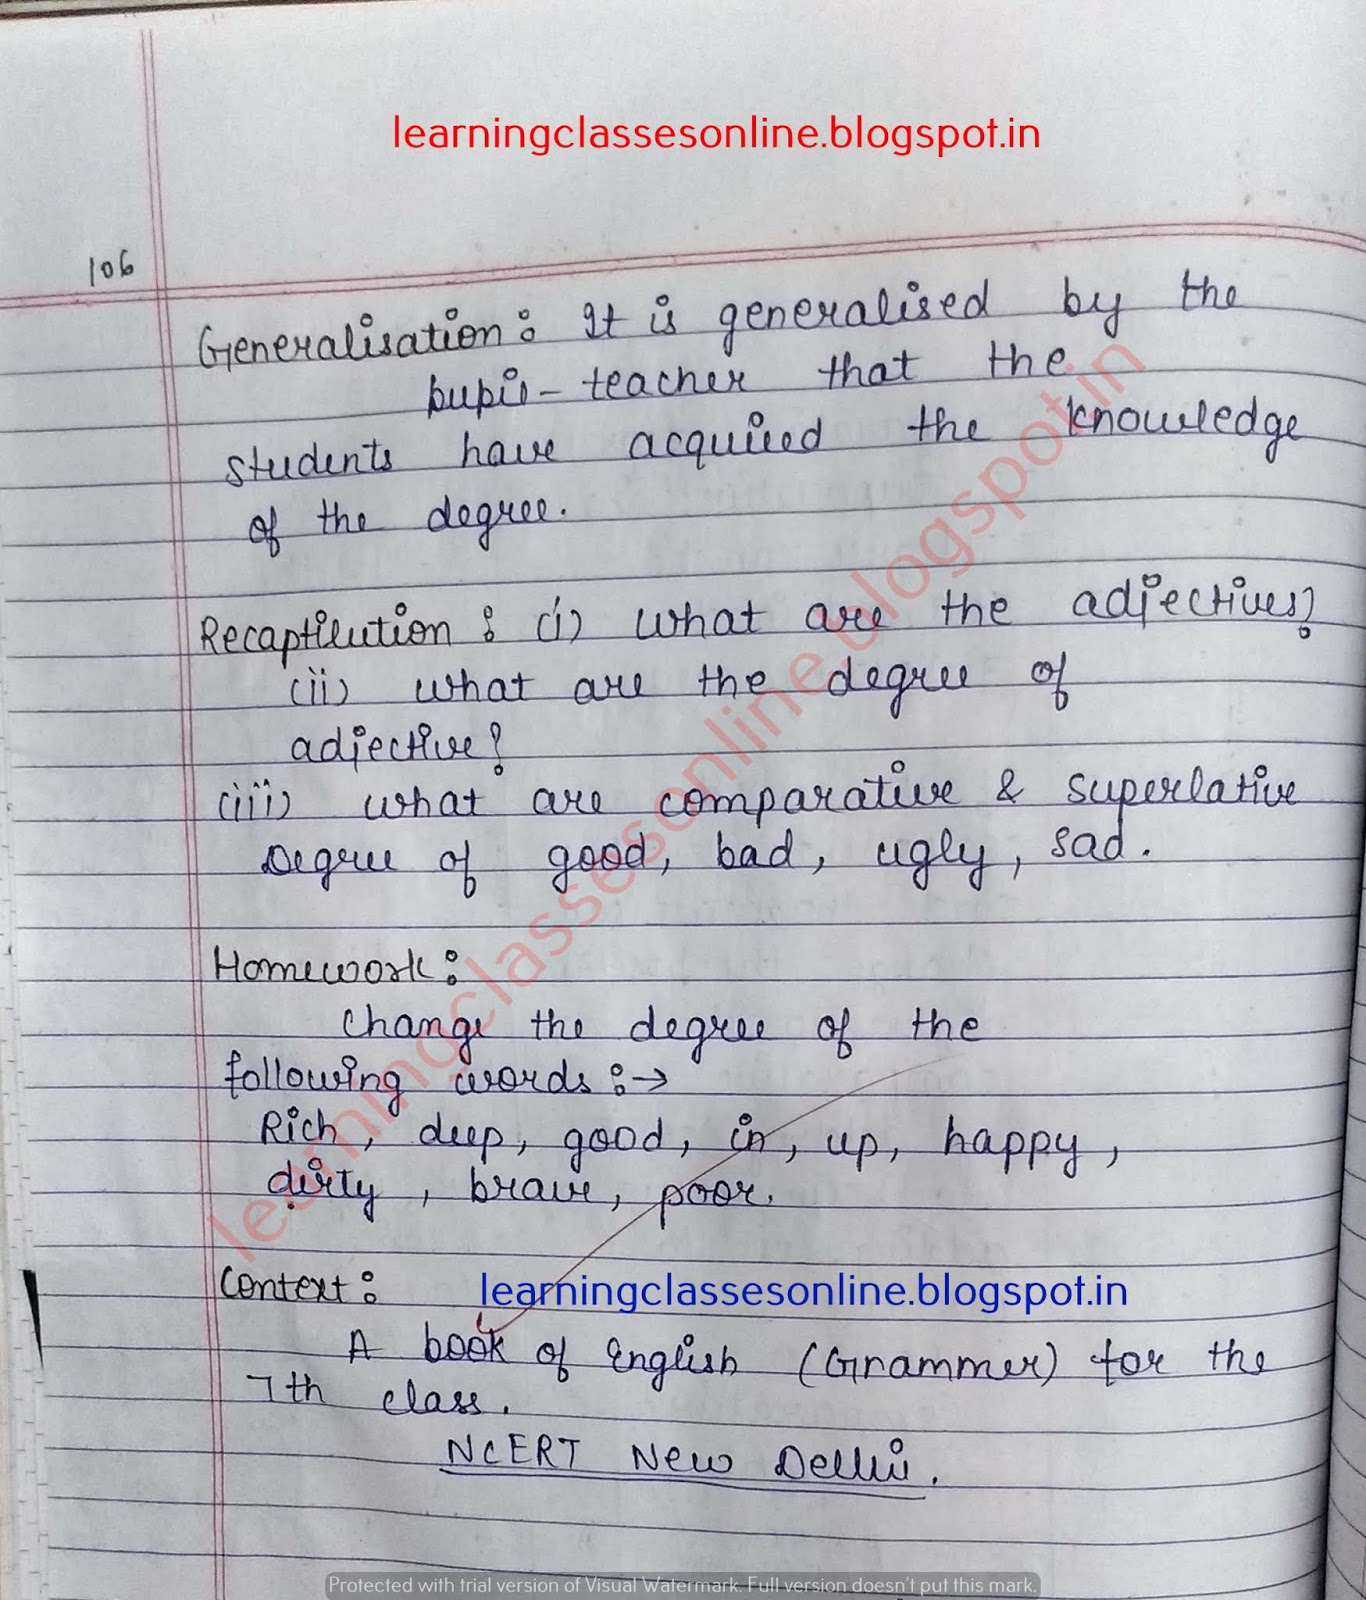 learningclassesonline.blogspot.in
106
Generalisation: It is generalised by the
pupil-teacher that the
students have acquired the knowledge
of the degree.
Recaptilution: (i) what are the adjectives?
(ii) what are the degree of
adjective?
(iii) what are comparative & superlative
Degree of good, bad, ugly, sad.
Homework:
change the degree of the
following words:→
Rich, deep, good, in, up, happy,
dirty, brave, poor.
Context:
learningclassesonline.blogspot.in
A book of English (Grammer) for the
7th class.
NCERT New Delhi.
learningclassesonline.blogspot.in
Protected with trial version of Visual Watermark. Full version doesn't put this mark.